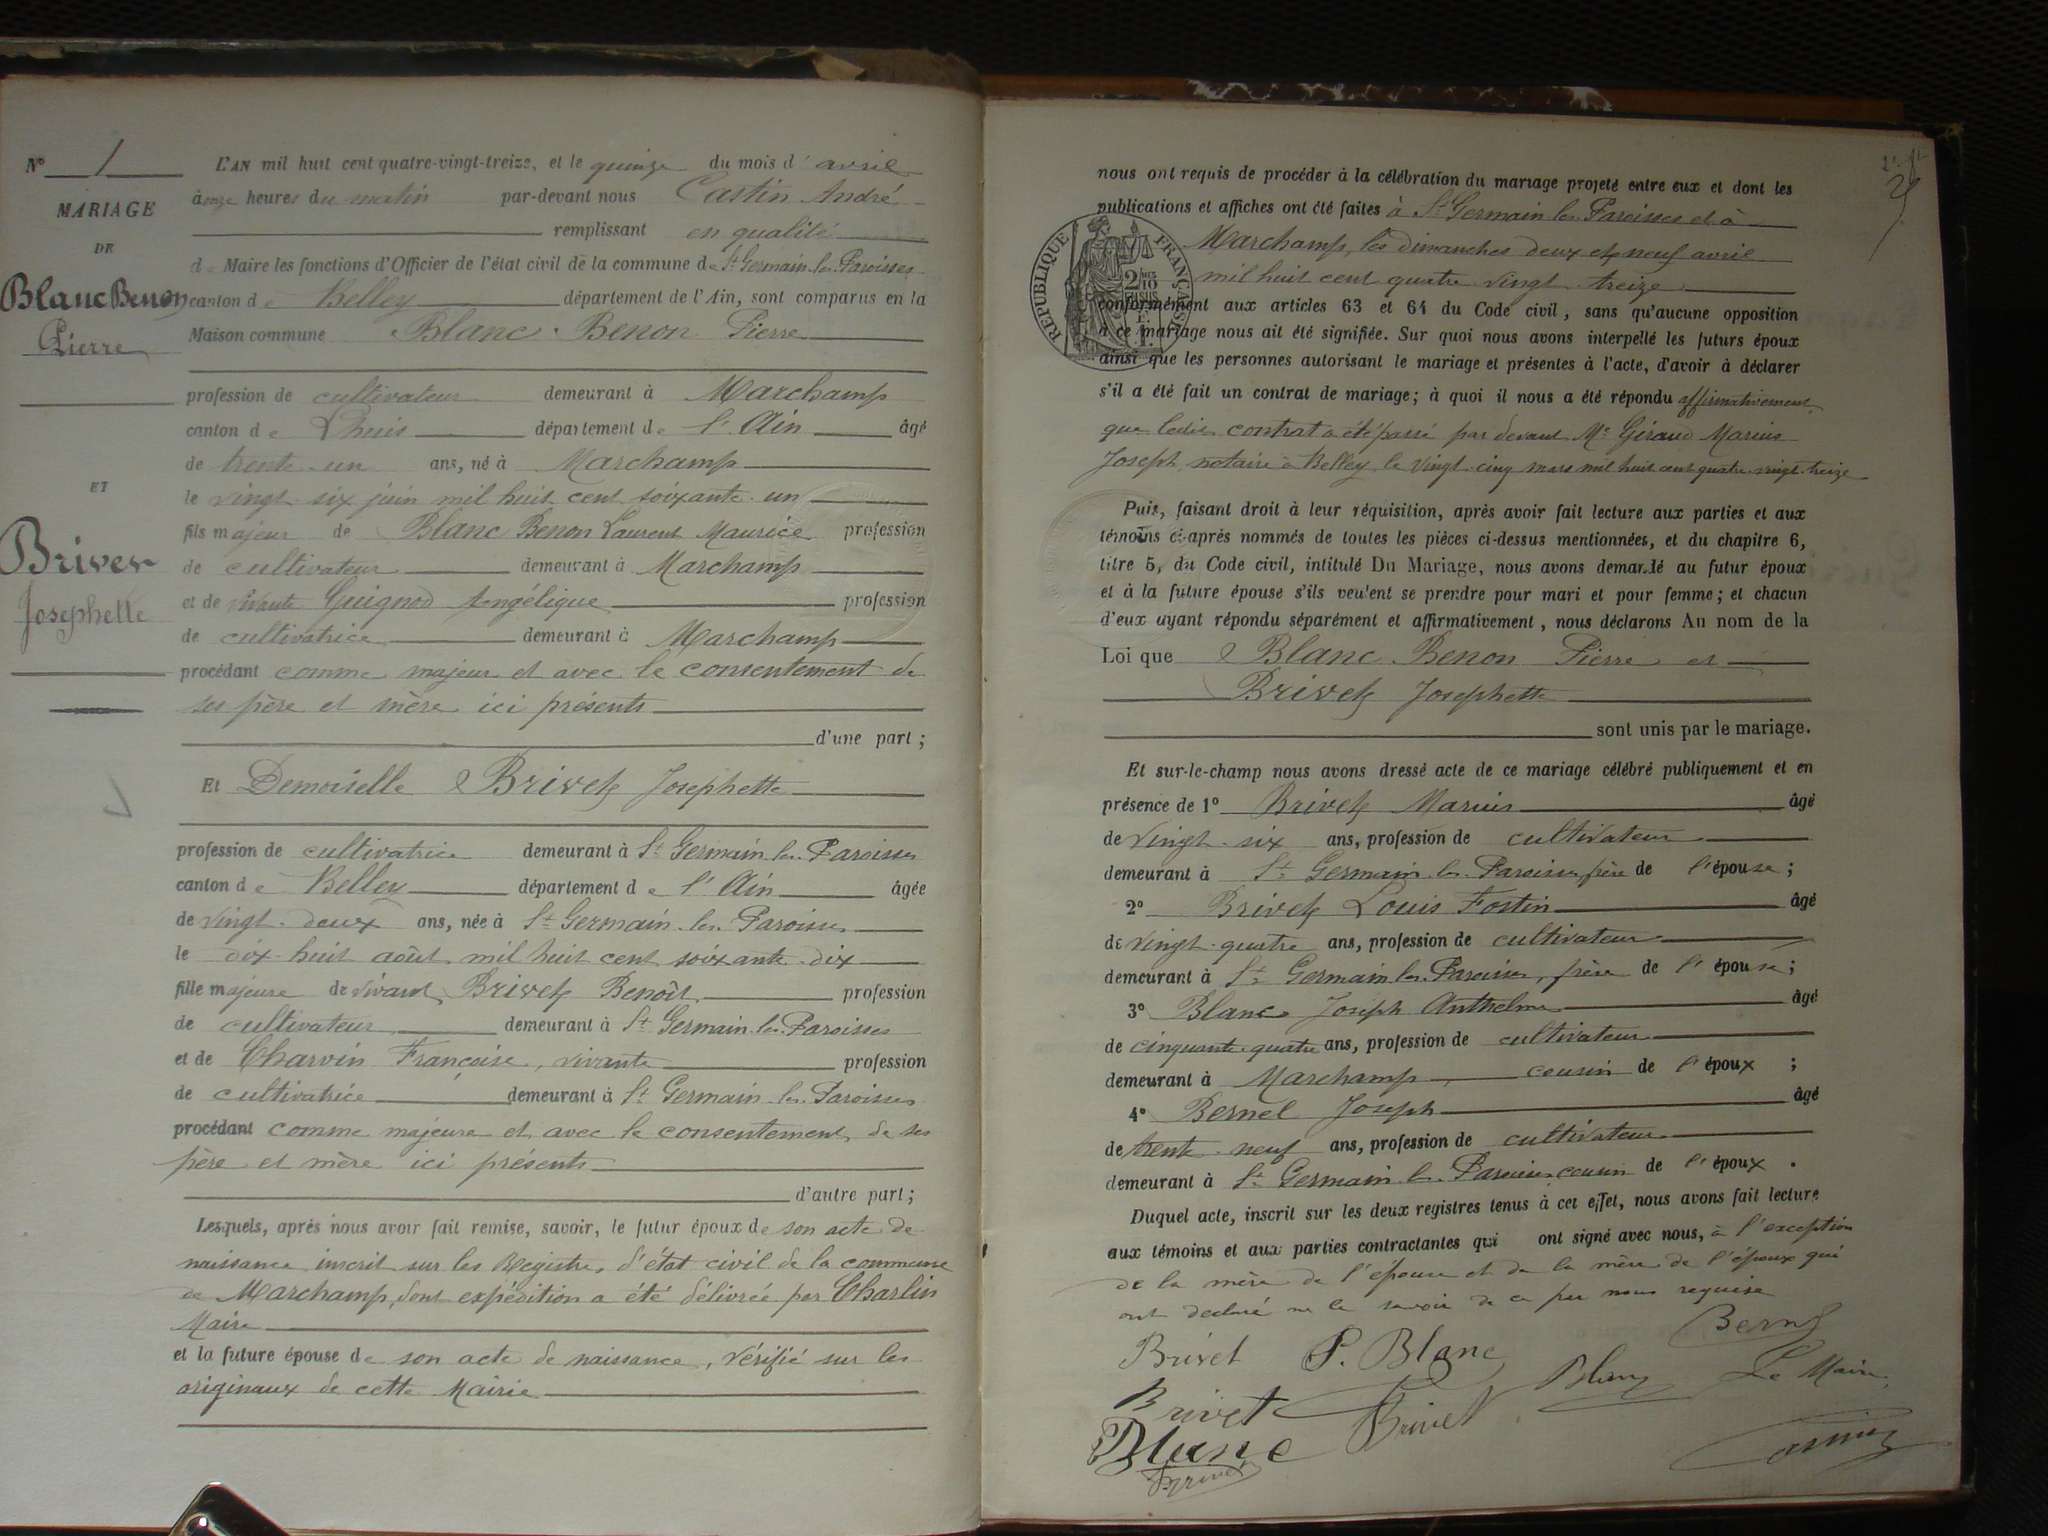 N° 1
MARIAGE
DE
Blanc Benon
Pierre
ET
Brivet
Josephette
L'AN mil huit cent quatre-vingt-treize, et le quinze du mois d'avril
à onze heures du matin par-devant nous Castin André
remplissant en qualité
de Maire les fonctions d'Officier de l'état civil de la commune de St Germain les Paroisses
canton de Belley département de l'Ain, sont comparus en la
Maison commune Blanc Benon Pierre
profession de cultivateur demeurant à Marchamp
canton de Lhuis département de l'Ain âgé
de trente un ans, né à Marchamp
le vingt six juin mil huit cent soixante un
fils majeur de Blanc Benon Laurent Maurice profession
de cultivateur demeurant à Marchamp
et de vivante Guignod Angélique profession
de cultivatrice demeurant à Marchamp
procédant comme majeur et avec le consentement de
ses père et mère ici présents
d'une part ;
Et Demoiselle Brivet Josephette
profession de cultivatrice demeurant à St Germain les Paroisses
canton de Belley département de l'Ain âgée
de vingt deux ans, née à St Germain les Paroisses
le dix huit août mil huit cent soixante dix
fille majeure de vivant Brivet Benoît profession
de cultivateur demeurant à St Germain les Paroisses
et de Charvin Françoise, vivante profession
de cultivatrice demeurant à St Germain les Paroisses
procédant comme majeure et avec le consentement de ses
père et mère ici présents
d'autre part ;
Lesquels, après nous avoir fait remise, savoir, le futur époux de son acte de
naissance inscrit sur les Registres d'état civil de la commune
de Marchamp, dont expédition a été délivrée par Charlin
Maire
et la future épouse de son acte de naissance, vérifié sur les
originaux de cette Mairie
nous ont requis de procéder à la célébration du mariage projeté entre eux et dont les
publications et affiches ont été faites à St Germain les Paroisses et à
Marchamp, les dimanches deux et neuf avril
mil huit cent quatre vingt treize
RÉPUBLIQUE FRANÇAISE
conformément aux articles 63 et 64 du Code civil, sans qu'aucune opposition
à ce mariage nous ait été signifiée. Sur quoi nous avons interpellé les futurs époux
ainsi que les personnes autorisant le mariage et présentes à l'acte, d'avoir à déclarer
s'il a été fait un contrat de mariage ; à quoi il nous a été répondu affirmativement
que ledit contrat a été passé par devant Me Giraud Marius
Joseph notaire à Belley le vingt cinq mars mil huit cent quatre vingt treize
Puis, faisant droit à leur réquisition, après avoir fait lecture aux parties et aux
témoins ci-après nommés de toutes les pièces ci-dessus mentionnées, et du chapitre 6,
titre 5, du Code civil, intitulé Du Mariage, nous avons demandé au futur époux
et à la future épouse s'ils veulent se prendre pour mari et pour femme ; et chacun
d'eux ayant répondu séparément et affirmativement, nous déclarons Au nom de la
Loi que Blanc Benon Pierre et
Brivet Josephette
sont unis par le mariage.
Et sur-le-champ nous avons dressé acte de ce mariage célébré publiquement et en
présence de 1° Brivet Marius âgé
de vingt six ans, profession de cultivateur
demeurant à St Germain les Paroisses frère de l'épouse ;
2° Brivet Louis Fostin âgé
de vingt quatre ans, profession de cultivateur
demeurant à St Germain les Paroisses, frère de l'épouse ;
3° Blanc Joseph Anthelme âgé
de cinquante quatre ans, profession de cultivateur
demeurant à Marchamp, cousin de l'époux ;
4° Bernel Joseph âgé
de trente neuf ans, profession de cultivateur
demeurant à St Germain les Paroisses cousin de l'époux .
Duquel acte, inscrit sur les deux registres tenus à cet effet, nous avons fait lecture
aux témoins et aux parties contractantes qui ont signé avec nous, à l'exception
de la mère de l'épouse et de la mère de l'époux qui
ont déclaré ne le savoir de ce par nous requise
Bernel
Brivet P. Blanc
Blanc Le Maire,
Brivet Brivet
Blanc
Brivet